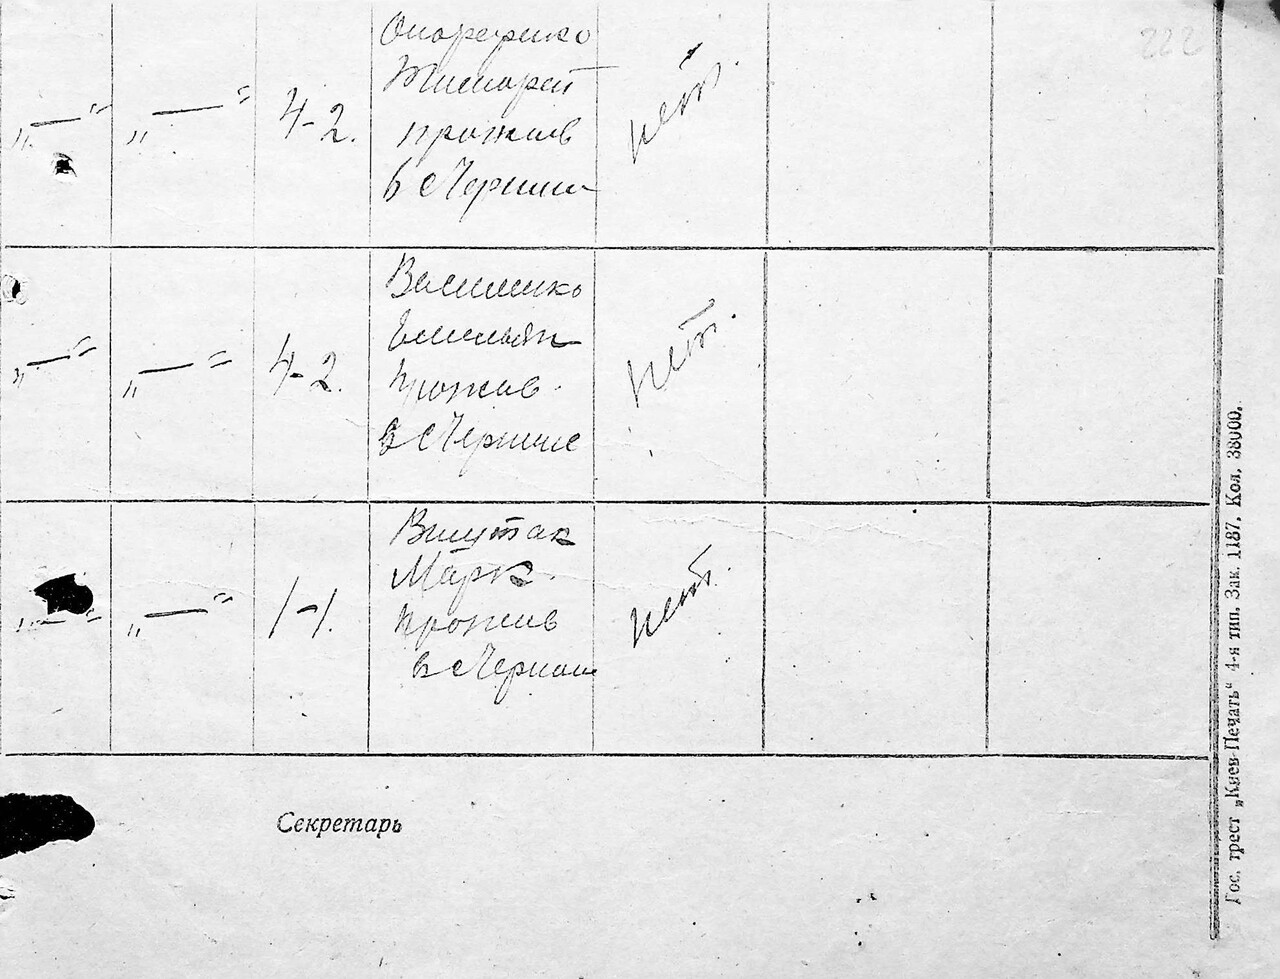 222
„—“ „—“ 4-2.
Тимофей
прожив
в с Чернин
нет.
„—“ „—“ 4-2.
Василенко
Емельян
прожив.
в с Чернине
нет.
„—“ „—“ 1-1.
Виштак
Марк.
прожив
в с Чернине
нет.
Секретарь
Гос. трест „Киев-Печать“ 4-я тип. Зак. 1187. Кол. 38000.